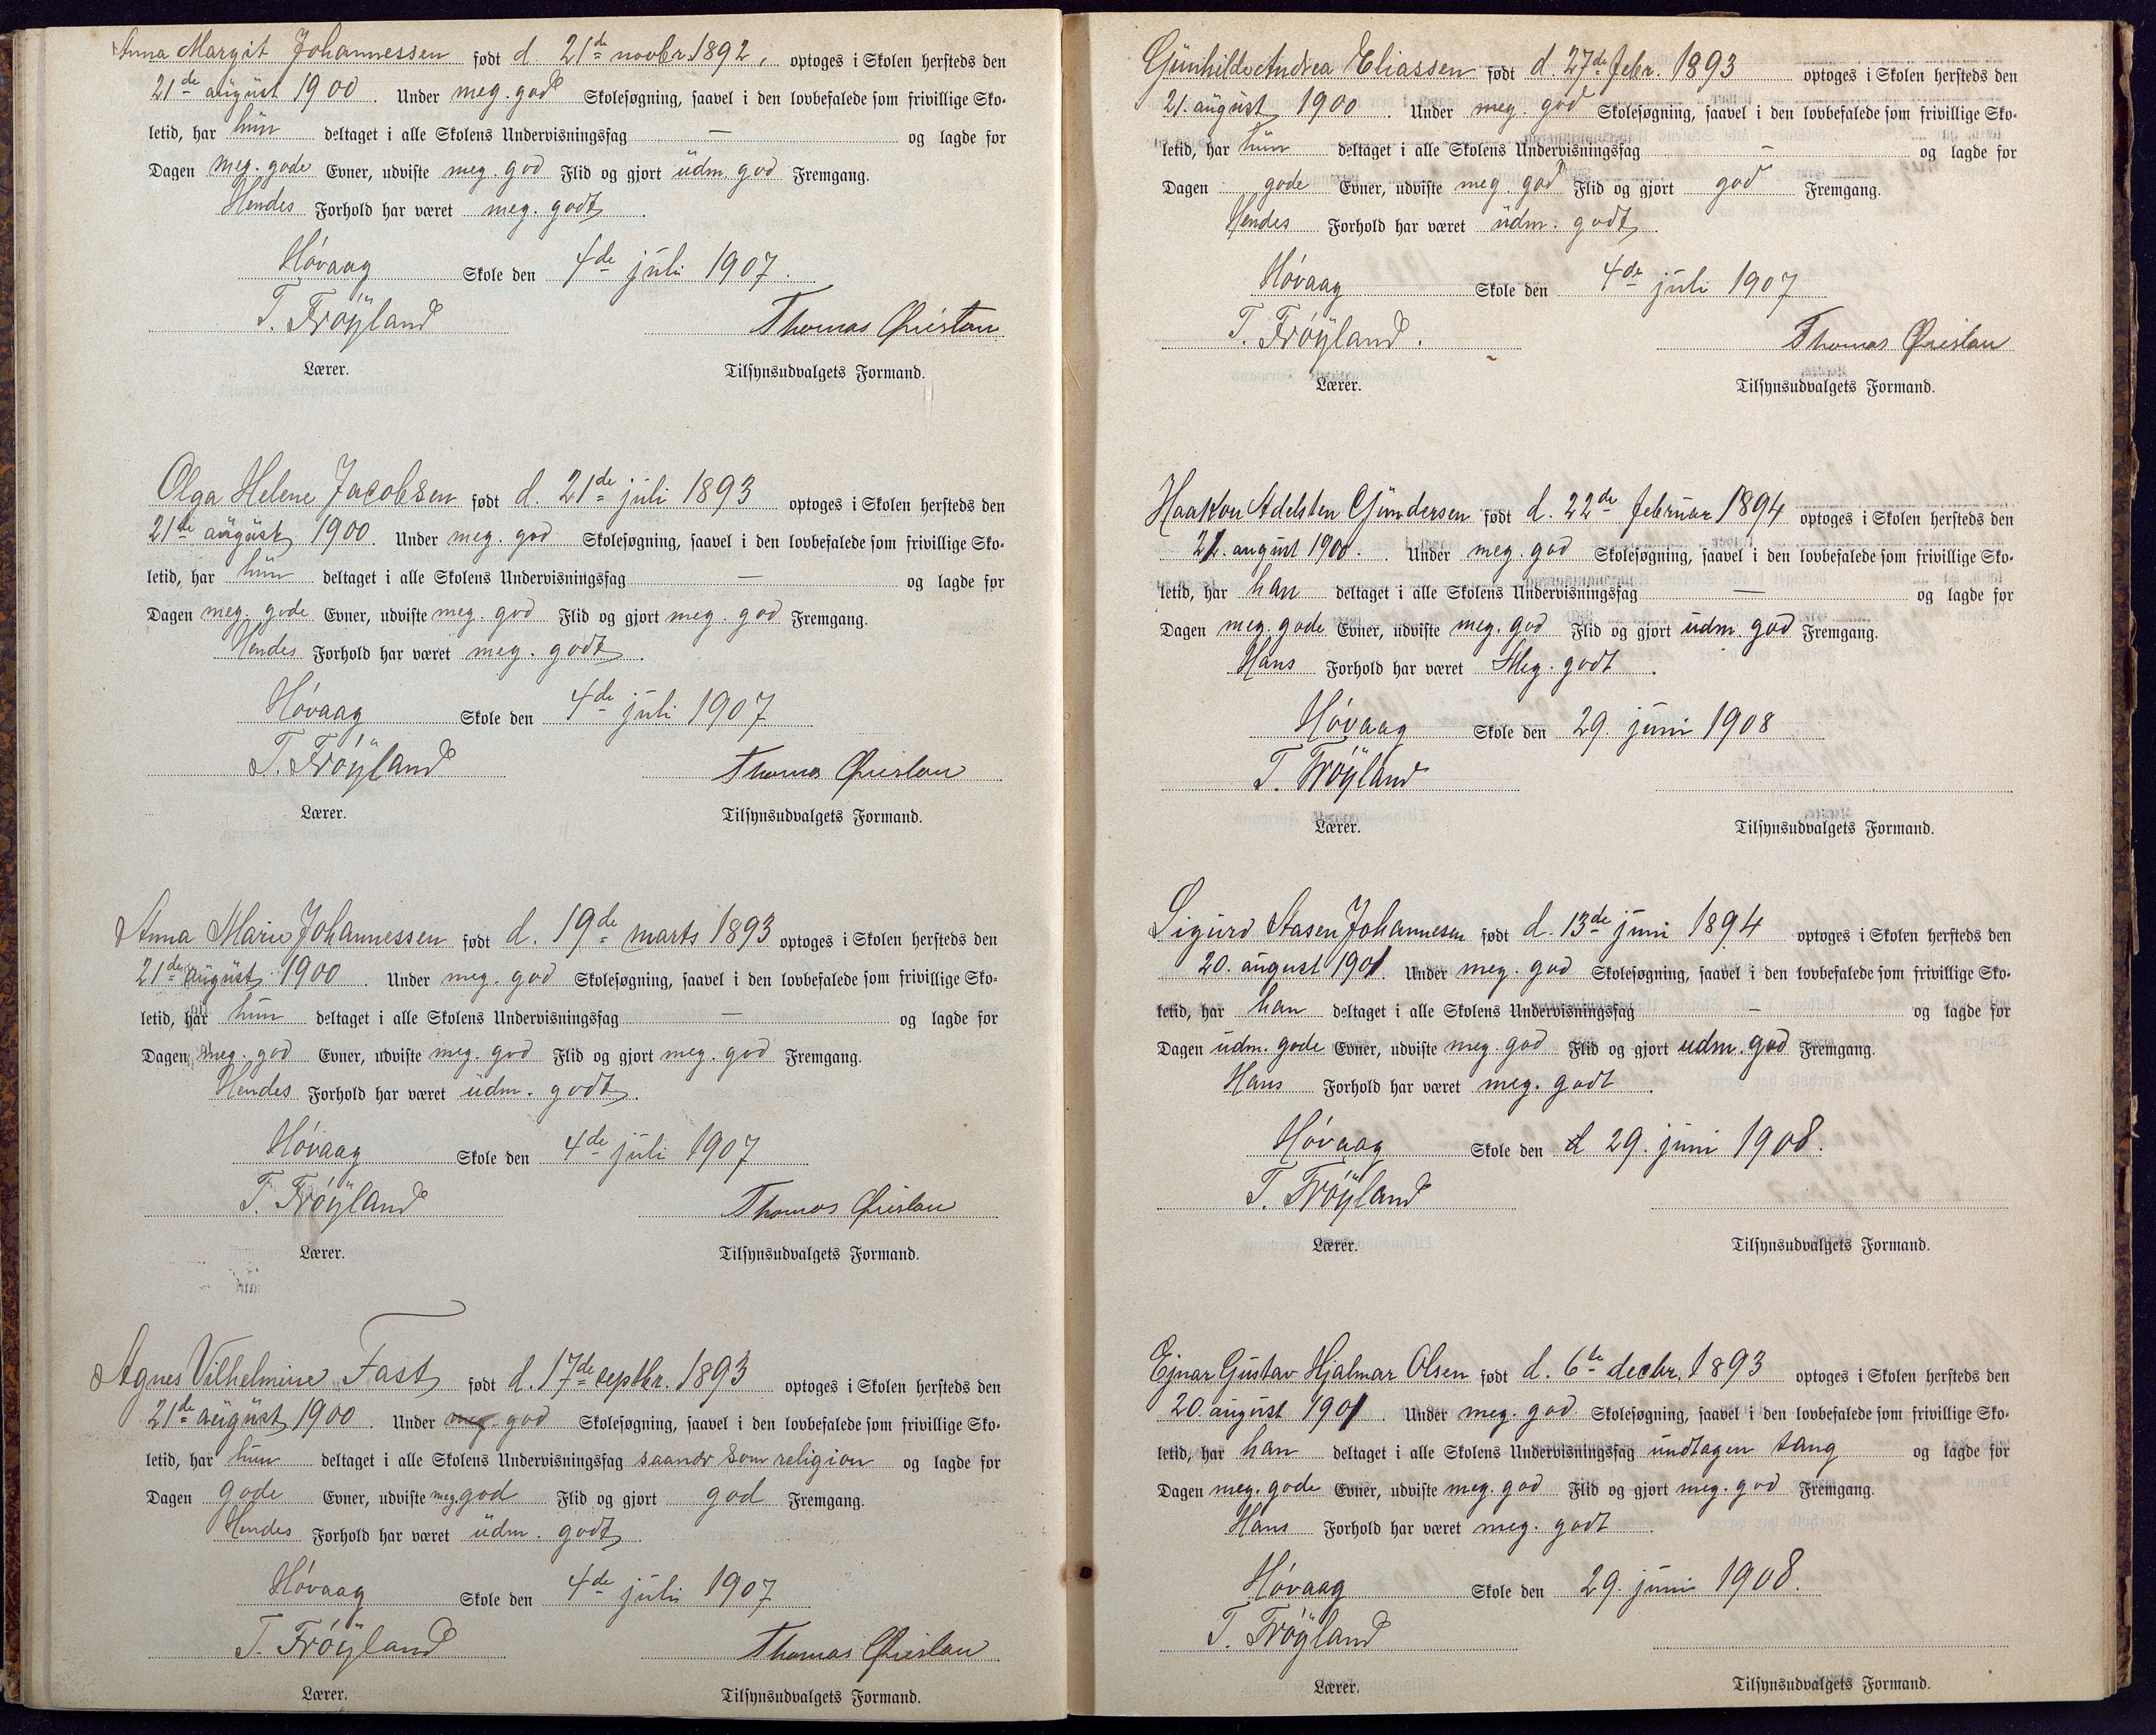 Anna Margit Johannessen født d. 21de novbr. 1892, optoges i Skolen hersteds den
21de august 1900. Under meg. god Skolesøgning, saavel i den lovbefalede som frivillige Sko-
letid, har hun deltaget i alle Skolens Undervisningsfag — og lagde for
Dagen meg. gode Evner, udviste meg. god Flid og gjort udm. god Fremgang.
Hendes Forhold har været meg. godt.
Høvaag Skole den 4de juli 1907.
T. Frøyland Thomas
Lærer. Tilsynsudvalgets Formand.
Olga Helene Jacobsen født d. 21de juli 1893 optoges i Skolen hersteds den
21de august 1900. Under meg. god Skolesøgning, saavel i den lovbefalede som frivillige Sko-
letid, har hun deltaget i alle Skolens Undervisningsfag — og lagde for
Dagen meg. gode Evner, udviste meg. god Flid og gjort meg. god Fremgang.
Hendes Forhold har været meg. godt.
Høvaag Skole den 4de juli 1907
T. Frøyland Thomas
Lærer. Tilsynsudvalgets Formand.
Anna Marie Johannessen født d. 19de marts 1893 optoges i Skolen hersteds den
21de august 1900. Under meg. god Skolesøgning, saavel i den lovbefalede som frivillige Sko-
letid, har hun deltaget i alle Skolens Undervisningsfag — og lagde for
Dagen meg. god Evner, udviste meg. god Flid og gjort meg. god Fremgang.
Hendes Forhold har været udm. godt.
Høvaag Skole den 4de juli 1907
T. Frøyland Thomas
Lærer. Tilsynsudvalgets Formand.
Agnes Vilhelmine Fast født d. 17de septbr. 1893 optoges i Skolen hersteds den
21de august 1900. Under meg. god Skolesøgning, saavel i den lovbefalede som frivillige Sko-
letid, har hun deltaget i alle Skolens Undervisningsfag saanær som religion og lagde for
Dagen gode Evner, udviste meg. god Flid og gjort god Fremgang.
Hendes Forhold har været udm. godt.
Høvaag Skole den 4de juli 1907
T. Frøyland Thomas
Lærer. Tilsynsudvalgets Formand.
Gunhild Andrea Eliassen født d. 27de febr. 1893 optoges i Skolen hersteds den
21. august 1900. Under meg. god Skolesøgning, saavel i den lovbefalede som frivillige Sko-
letid, har hun deltaget i alle Skolens Undervisningsfag — og lagde for
Dagen gode Evner, udviste meg. god Flid og gjort god Fremgang.
Hendes Forhold har været udm. godt.
Høvaag Skole den 4de juli 1907
T. Frøyland. Thomas
Lærer. Tilsynsudvalgets Formand.
Haakon Adelsten Gundersen født d. 22de februar 1894 optoges i Skolen hersteds den
21. august 1900. Under meg. god Skolesøgning, saavel i den lovbefalede som frivillige Sko-
letid, har han deltaget i alle Skolens Undervisningsfag — og lagde for
Dagen meg. gode Evner, udviste meg. god Flid og gjort udm. god Fremgang.
Hans Forhold har været Meg. godt.
Høvaag Skole den 29. juni 1908
T. Frøyland
Lærer. Tilsynsudvalgets Formand.
Sigurd Aasen Johannesen født d. 13de juni 1894 optoges i Skolen hersteds den
20. august 1901. Under meg. god Skolesøgning, saavel i den lovbefalede som frivillige Sko-
letid, har han deltaget i alle Skolens Undervisningsfag — og lagde for
Dagen udm. gode Evner, udviste meg. god Flid og gjort udm. god Fremgang.
Hans Forhold har været meg. godt.
Høvaag Skole den d 29. juni 1908.
T. Frøyland
Lærer. Tilsynsudvalgets Formand.
Ejnar Gustav Hjalmar Olsen født d. 6te decbr. 1893 optoges i Skolen hersteds den
20. august 1901. Under meg. god Skolesøgning, saavel i den lovbefalede som frivillige Sko-
letid, har han deltaget i alle Skolens Undervisningsfag undtagen sang og lagde for
Dagen meg. gode Evner, udviste meg. god Flid og gjort meg. god Fremgang.
Hans Forhold har været meg. godt.
Høvaag Skole den 29. juni 1908.
T. Frøyland
Lærer. Tilsynsudvalgets Formand.